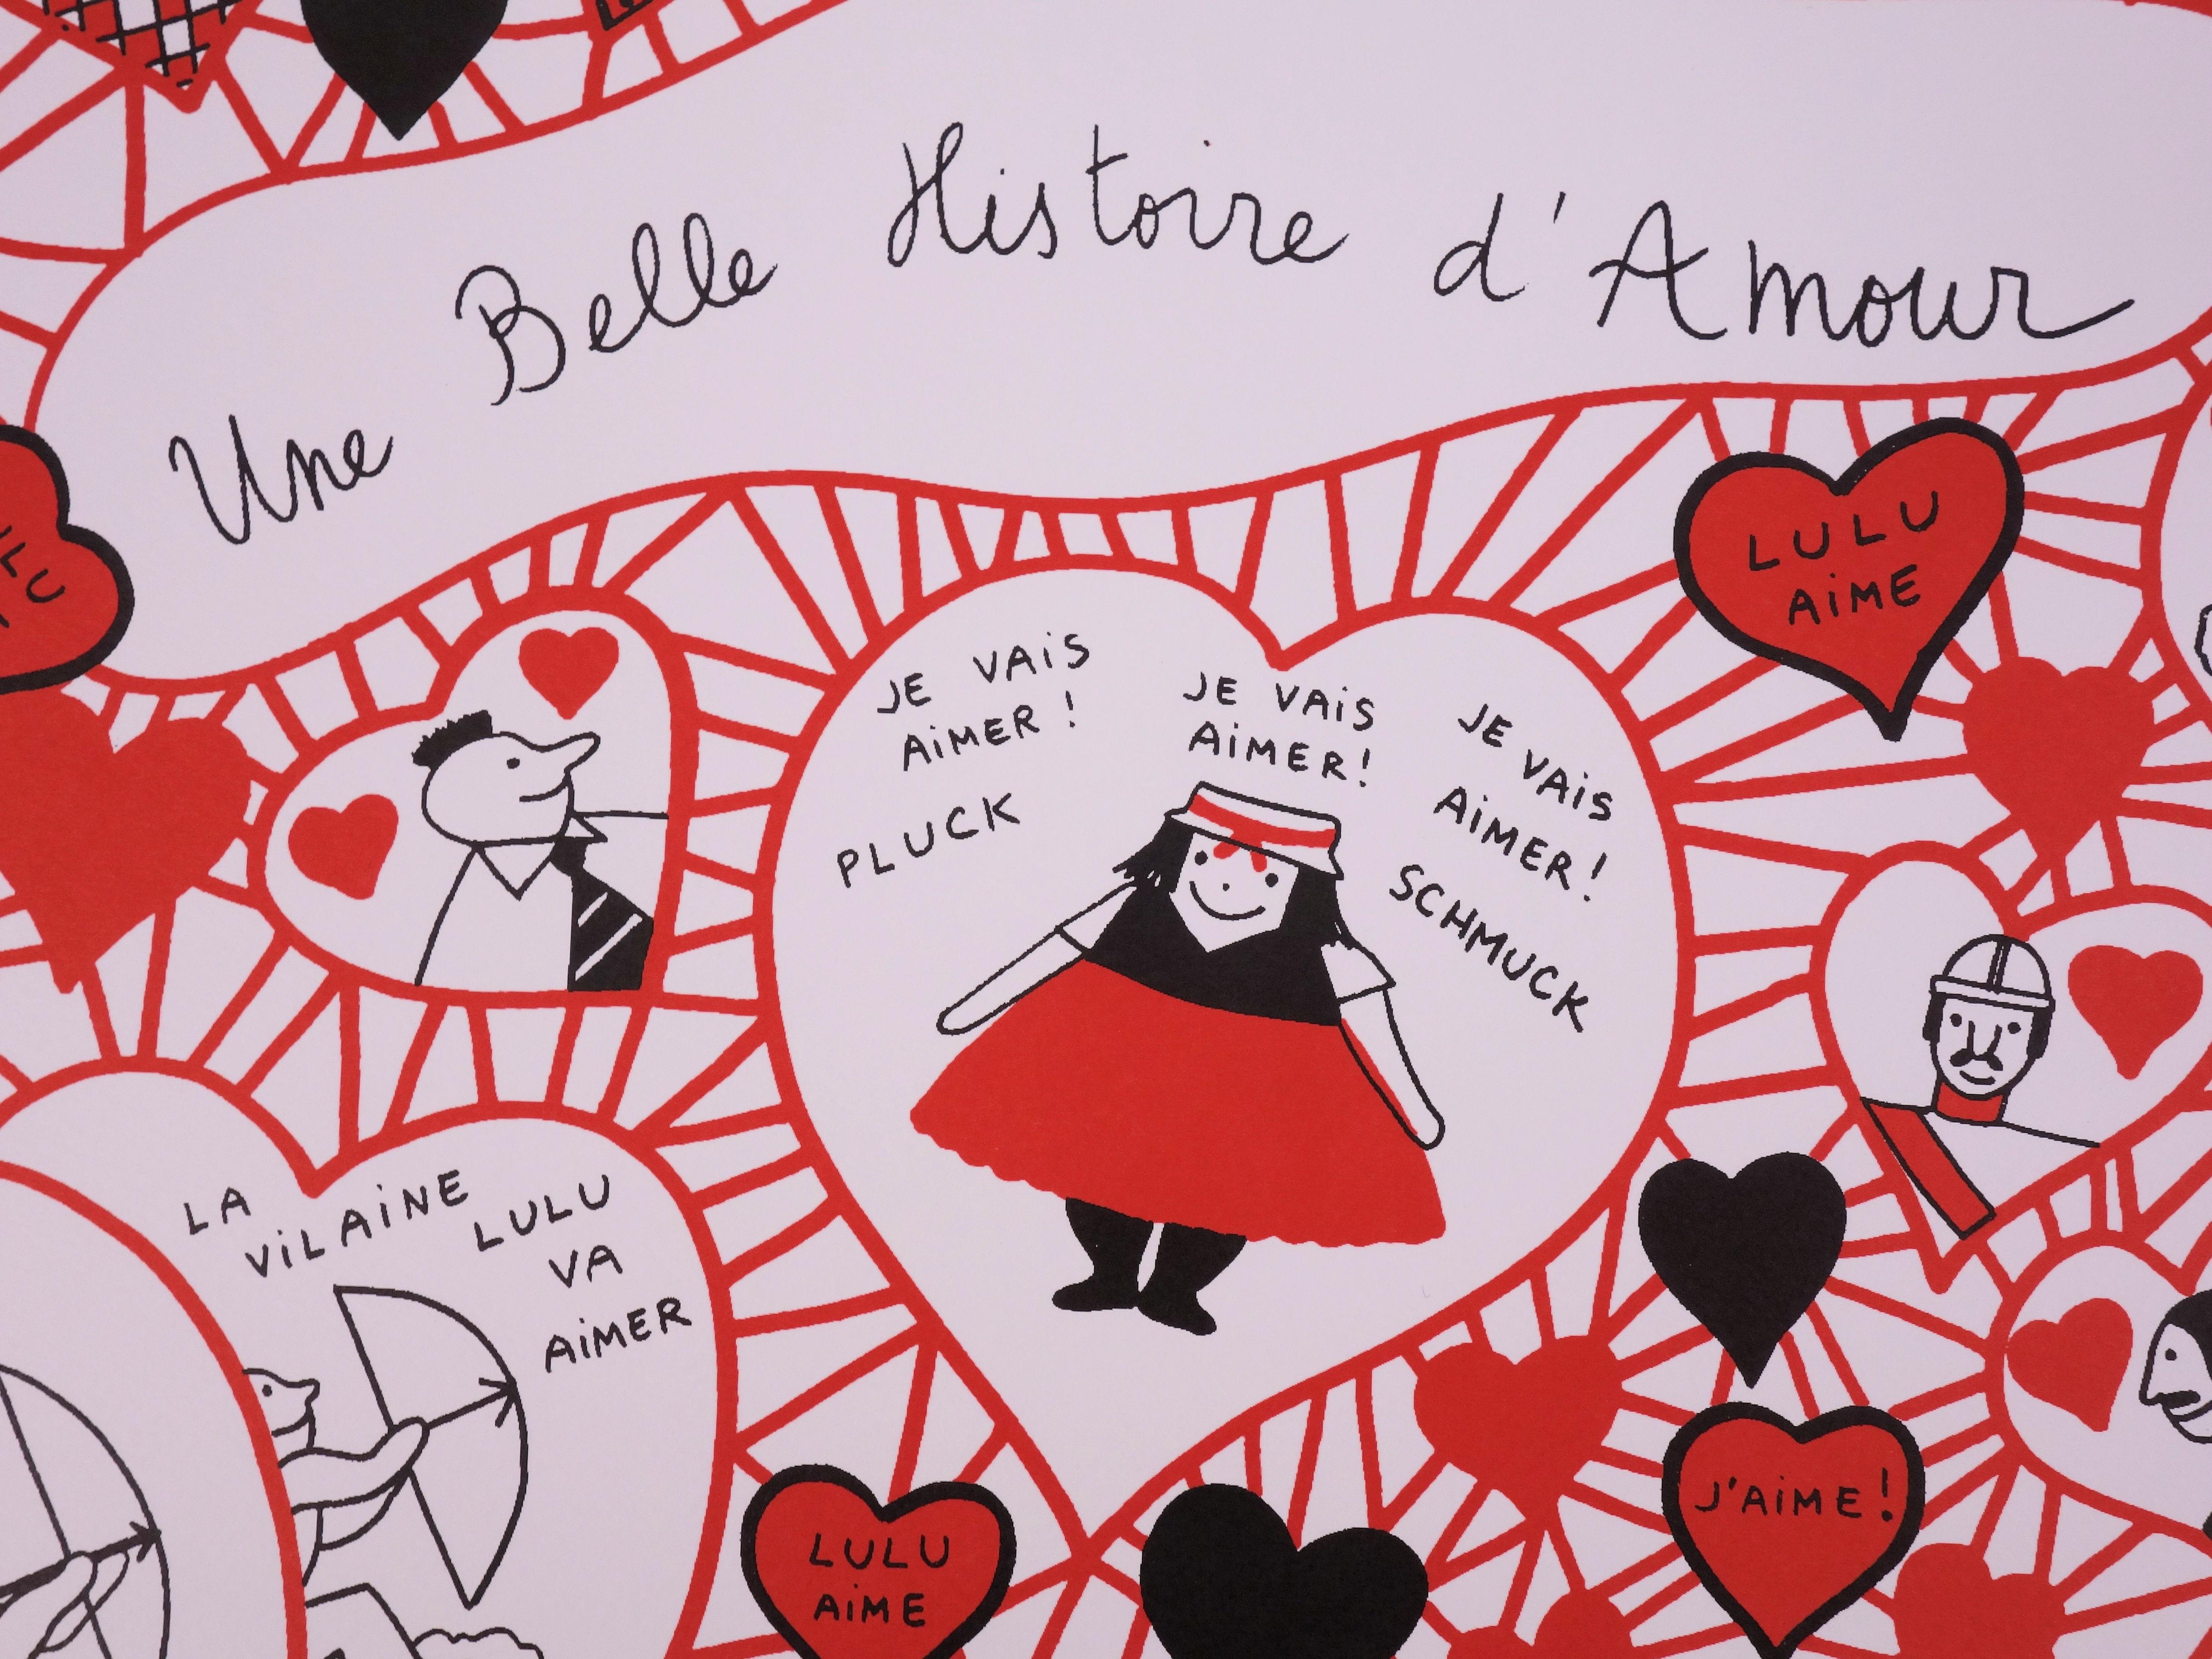 Une Belle Histoire d'Amour
LULU
AiME
JE VAiS
AiMER !
JE VAiS
AiMER!
JE VAiS
AiMER!
PLUCK
SCHMUCK
LA
ViLAiNE
LULU
VA
AiMER
J'AiME!
LULU
AiME